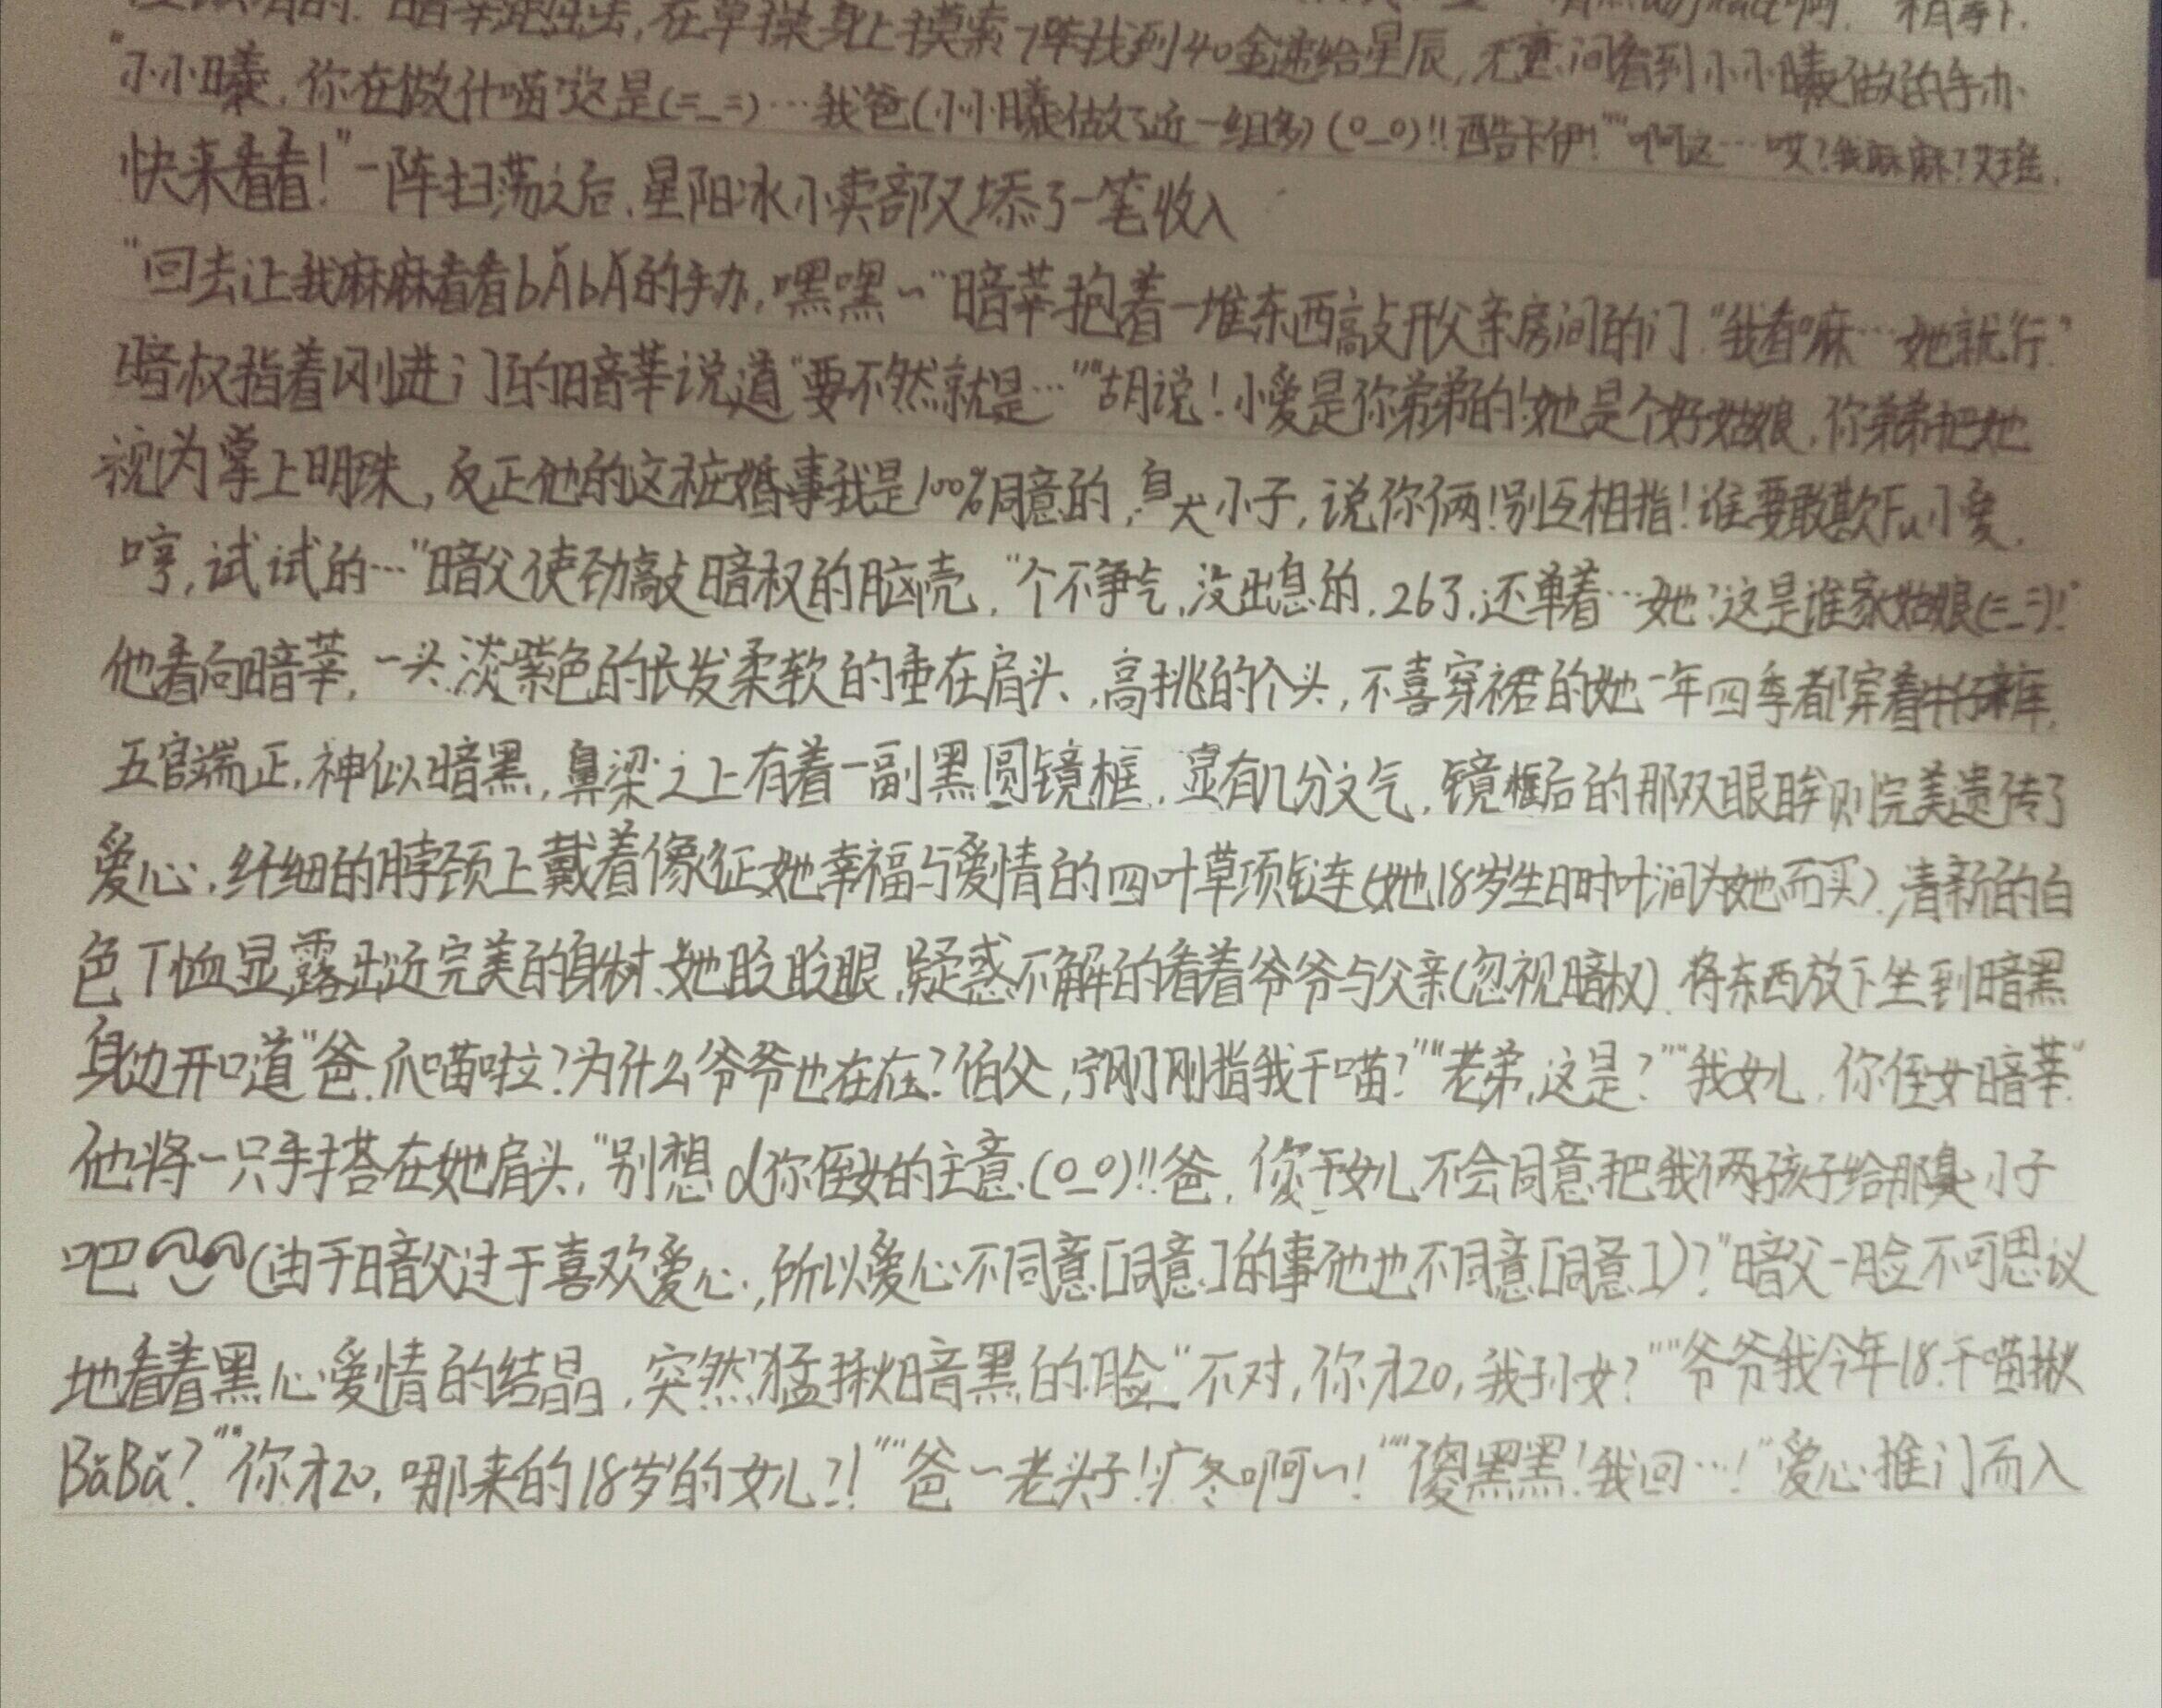 暗莘跑过去，在草揉身上摸索了阵找到40金递给星辰，无意间看到小小曦做的手办
"小小曦，你在做什喵？""这是(=_=)…我爸(小小曦做了近一组多)(0_0)!!酷卡伊！""啊这…哎？我麻麻？艾瑶，
快来看看！"一阵扫荡之后，星阳冰小卖部又添了一笔收入
"回去让我麻麻看看bǍbǍ的手办，嘿嘿~"暗莘抱着一堆东西敲开父亲房间的门。"我看嘛…她就行。"
暗权指着刚进门的暗莘说道"要不然就是…""胡说！小爱是你弟弟的！她是个好姑娘，你弟弟把她
视为掌上明珠，反正他的这桩婚事我是100%同意的，臭小子，说你俩！别互相指！谁要敢欺Fu小爱，
哼，试试的…"暗父使劲敲暗权的脑壳，"个不争气，没出息的，26了，还单着…她？这是谁家姑娘(=_=)!"
他看向暗莘，一头淡紫色的长发柔软的垂在肩头，高挑的个头，不喜穿裙的她一年四季都穿着牛仔裤，
五官端正，神似暗黑，鼻梁之上有着一副黑圆镜框，显有几分文气，镜框后的那双眼眸则完美遗传了
爱心，纤细的脖颈上戴着像征她幸福与爱情的四叶草项链(她18岁生日时叶涧为她而买)，清新的白
色T恤显露出近完美的身材，她眨眨眼，疑惑不解的看着爷爷与父亲(忽视暗权)，将东西放下坐到暗黑
身边开口道"爸，爪喵啦？为什么爷爷也在在？伯父，宁刚刚指我干喵？""老弟，这是？""我女儿，你侄女暗莘"
他将一只手搭在她肩头，"别想d你侄女的主意(0_0)!!爸，你干女儿不会同意把我俩孩子给那臭小子
吧(由于暗父过于喜欢爱心，所以爱心不同意[同意]的事他也不同意[同意])？"暗父一脸不可思议
地看着黑心爱情的结晶，突然猛揪暗黑的脸"不对，你才20，我孙女？""爷爷我今年18，干喵揪
BǎBǎ？""你才20，哪来的18岁的女儿?!""爸~老头子！疼啊~！""傻黑黑！我回…！"爱心推门而入